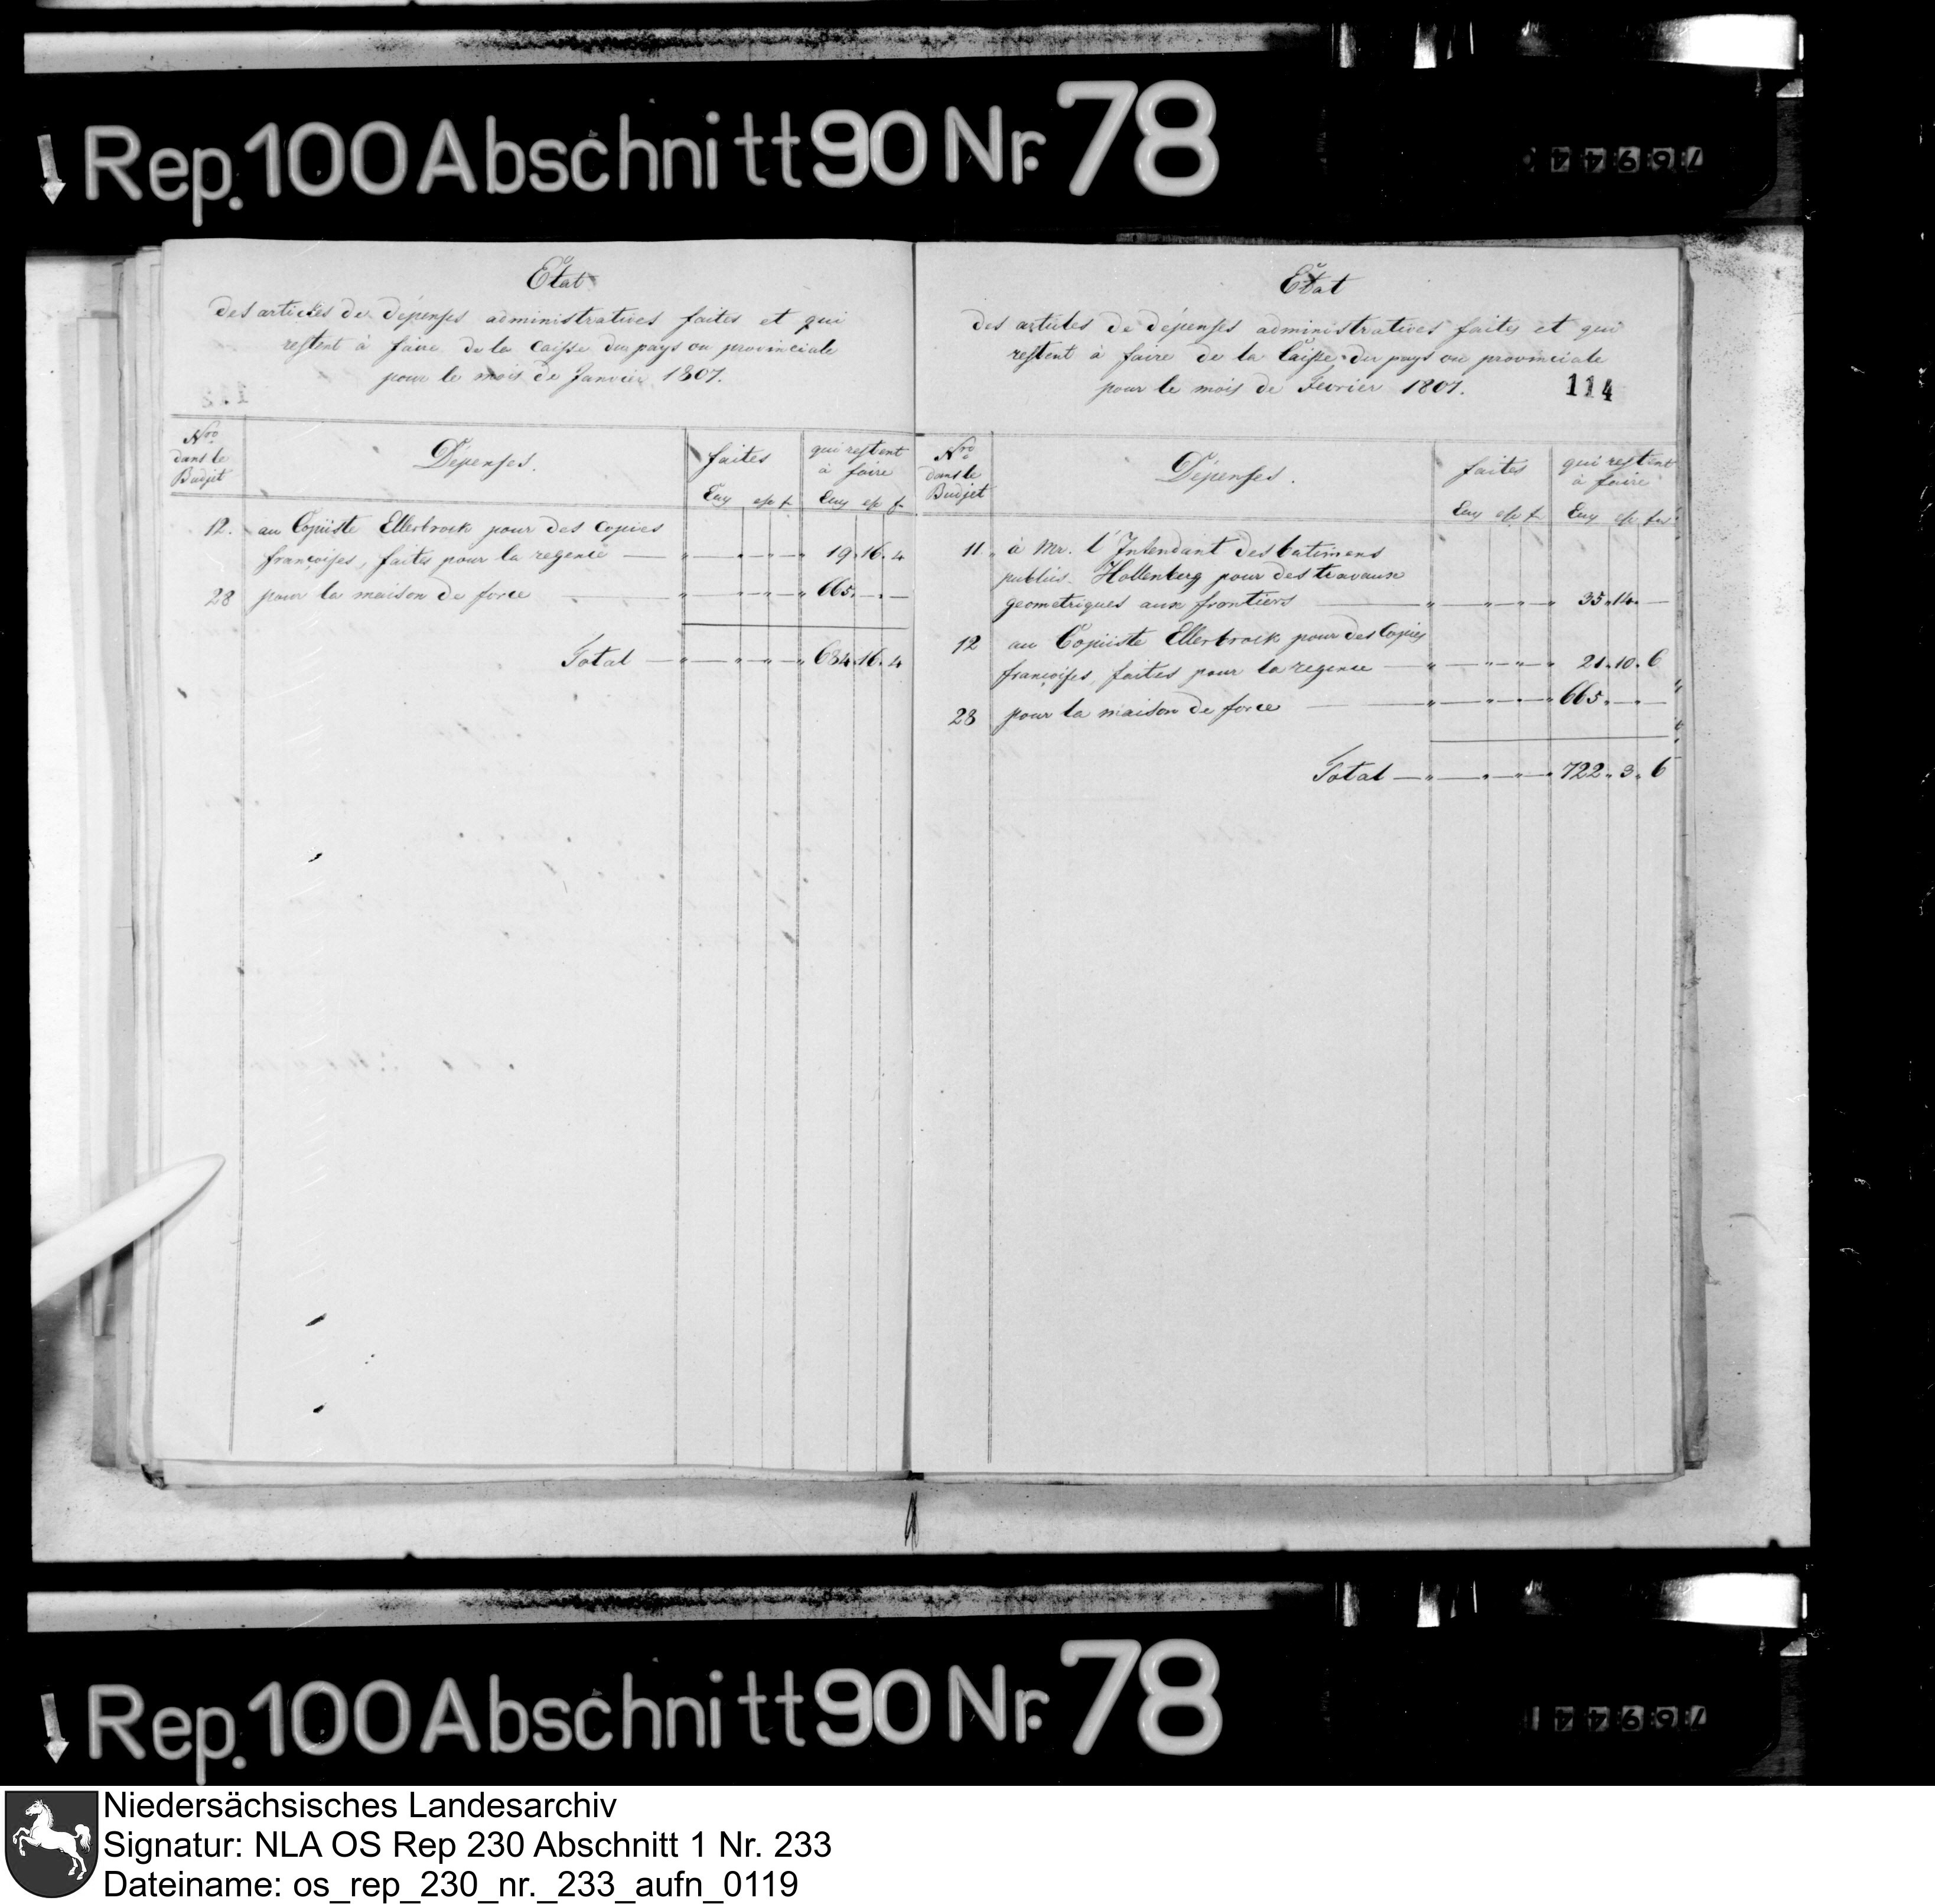 Rep. 100 Abschnitt 90 Nr. 78
Etat
des articles de dépenses administratives faites et qui
restent à faire de la caisse du pays ou provinciale
pour le mois de Janvier 1807.
Nro dans le Budjet
Dépenses.
faites
qui restent à faire
12. au Copiiste Ellerbrock pour des copies
françoises, faites pour la regence — 19. 16. 4
28 pour la maison de force — 665. — . —
Total — 684. 16. 4
Etat
des articles de dépenses administratives faites et qui
restent à faire de la Caisse du pays ou provinciale
pour le mois de Fevrier 1807.
114
Nro dans le Budjet
Dépenses.
faites
qui restent à faire
11. à Mr. l'Intendant des batimens
publics Hollenberg pour des travaux
geometriques aux frontiers — 35. 14. —
12 au Copiiste Ellerbrock pour des Copies
françoises, faites pour la regence — 21. 10. 6
28 pour la maison de force — 665. — . —
Total — 722. 3. 6
Rep. 100 Abschnitt 90 Nr. 78
Niedersächsisches Landesarchiv
Signatur: NLA OS Rep 230 Abschnitt 1 Nr. 233
Dateiname: os_rep_230_nr._233_aufn_0119